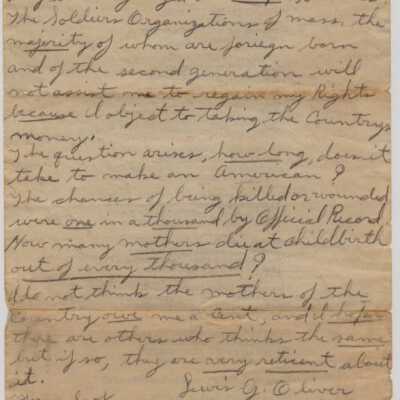 The Soldiers Organizations of mass. the
majority of whom are foriegn born
and of the second generation will
not assist me to regain my Rights
because I object to taking the Countrys
money.
The question arises, how long, does it
take to make an American?
The chances of being killed or wounded
were one in a thousand by Official Record
How many mothers die at childbirth
out of every thousand?
I do not think the mothers of the
Country owe me a Cent, and I hope
there are others who thinks the same
but if so, they are very reticent about
it.
Lewis G. Oliver